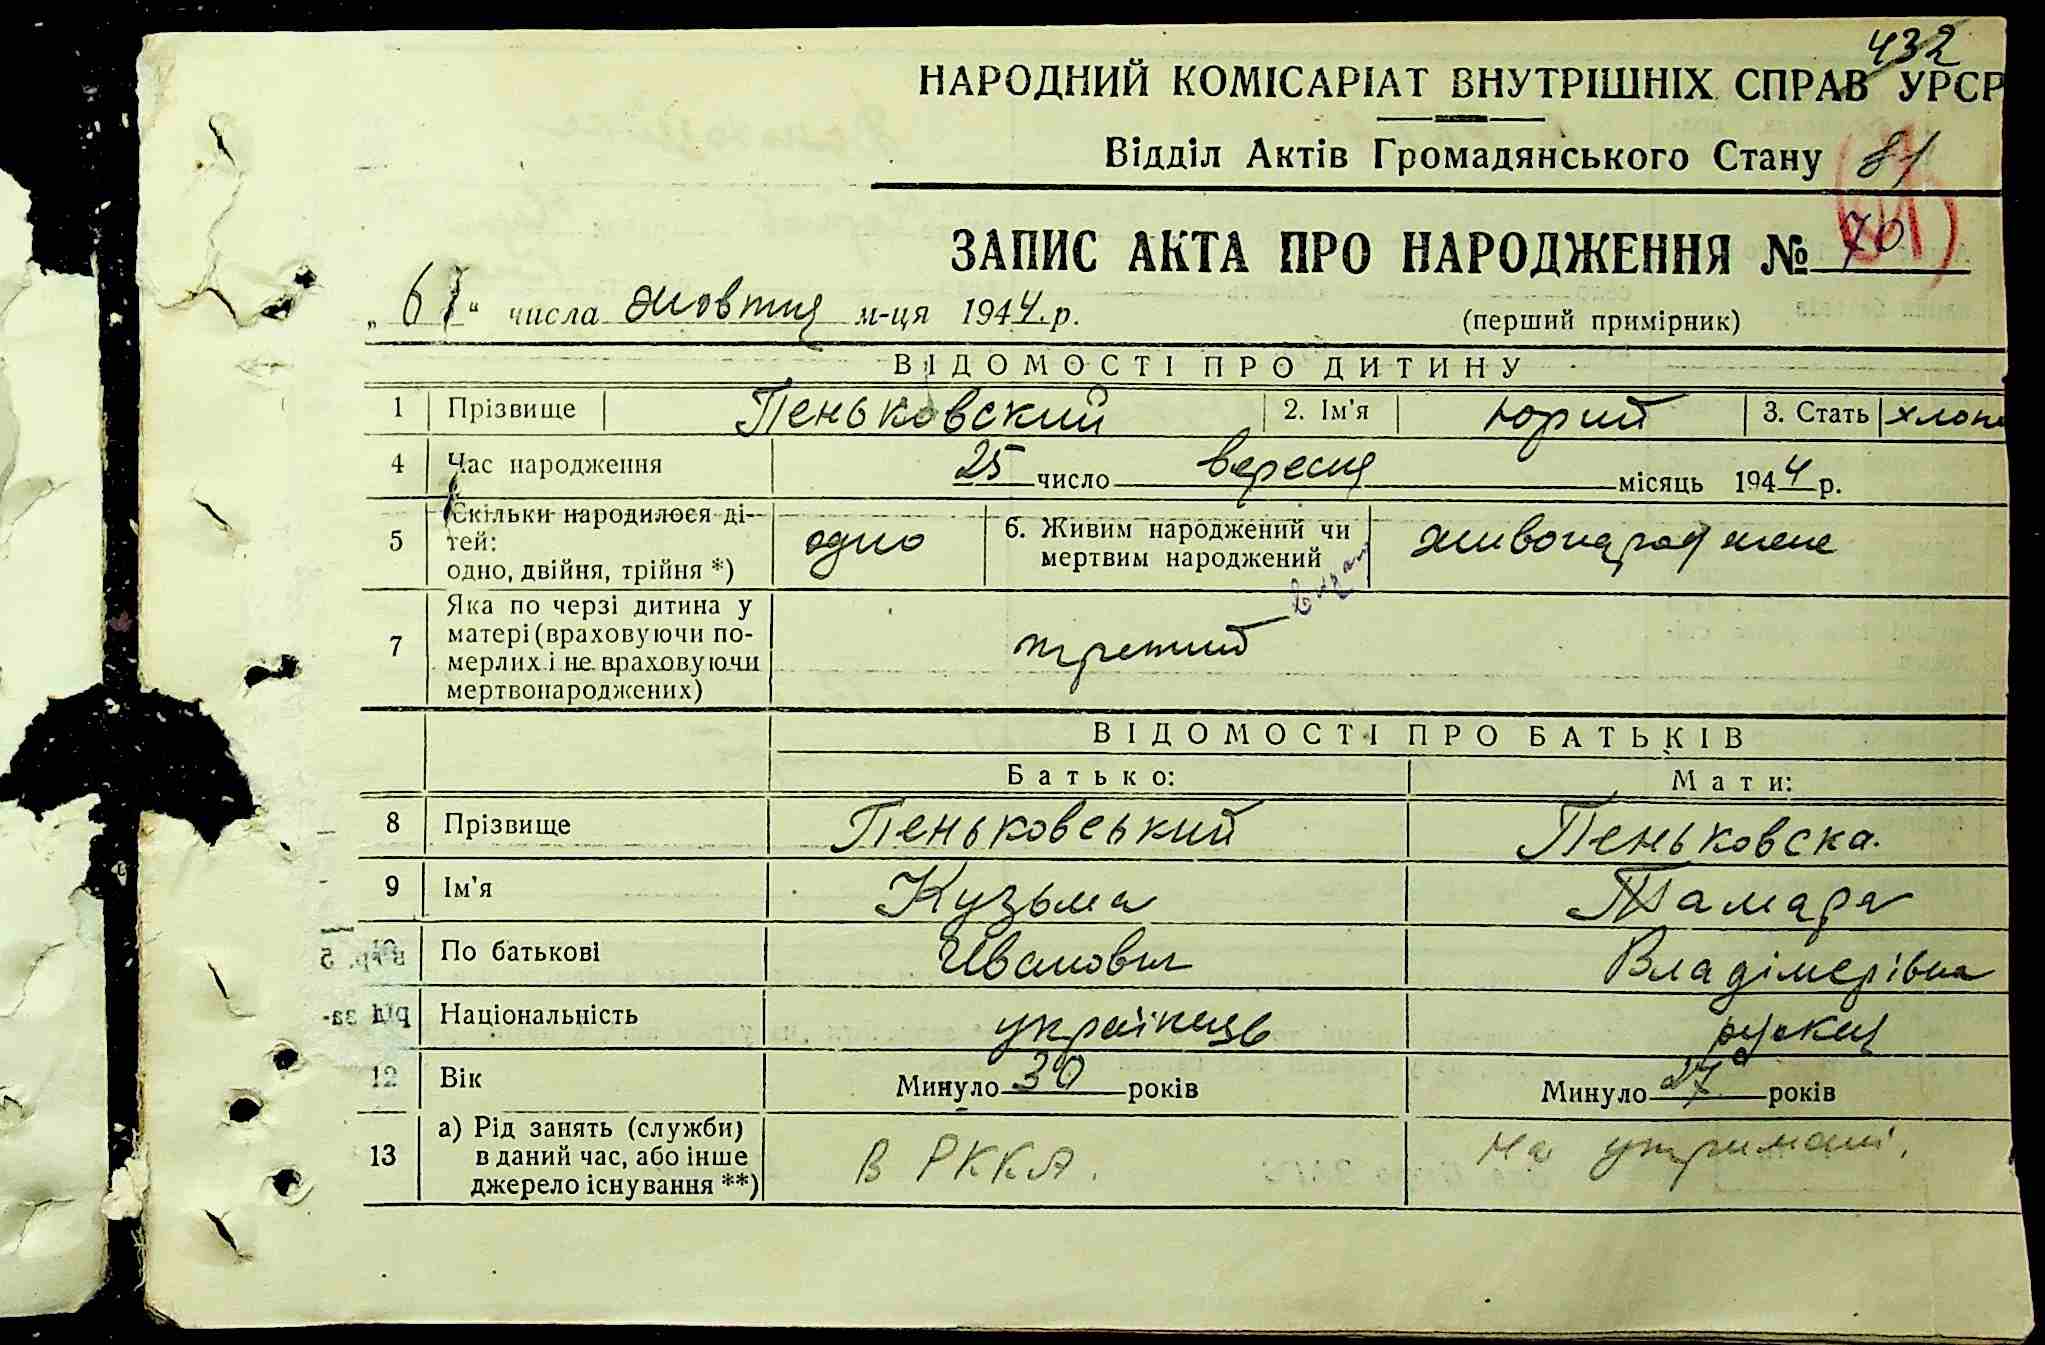 432
НАРОДНИЙ КОМІСАРІАТ ВНУТРІШНІХ СПРАВ УРСР
Відділ Актів Громадянського Стану 81
ЗАПИС АКТА ПРО НАРОДЖЕННЯ № 70
„ 6 “ числа жовтня м-ця 1944 р. (перший примірник)
ВІДОМОСТІ ПРО ДИТИНУ
1 Прізвище Пеньковский 2. Ім'я Юрий 3. Стать хлопе
4 Час народження 25 число вересня місяць 1944 р.
5 Скільки народилося ді-
тей:
одно, двійня, трійня *) одно 6. Живим народжений чи
мертвим народжений живонароджене
7 Яка по черзі дитина у
матері (враховуючи по-
мерлих і не враховуючи
мертвонароджених) третий
ВІДОМОСТІ ПРО БАТЬКІВ
Батько: Мати:
8 Прізвище Пеньковський Пеньковска.
9 Ім'я Кузьма Тамара
10 По батькові Иванович Владімерівна
Національність українець руская
12 Вік Минуло 30 років Минуло 27 років
13 а) Рід занять (служби)
в даний час, або інше
джерело існування **) в РККА. на утримані.